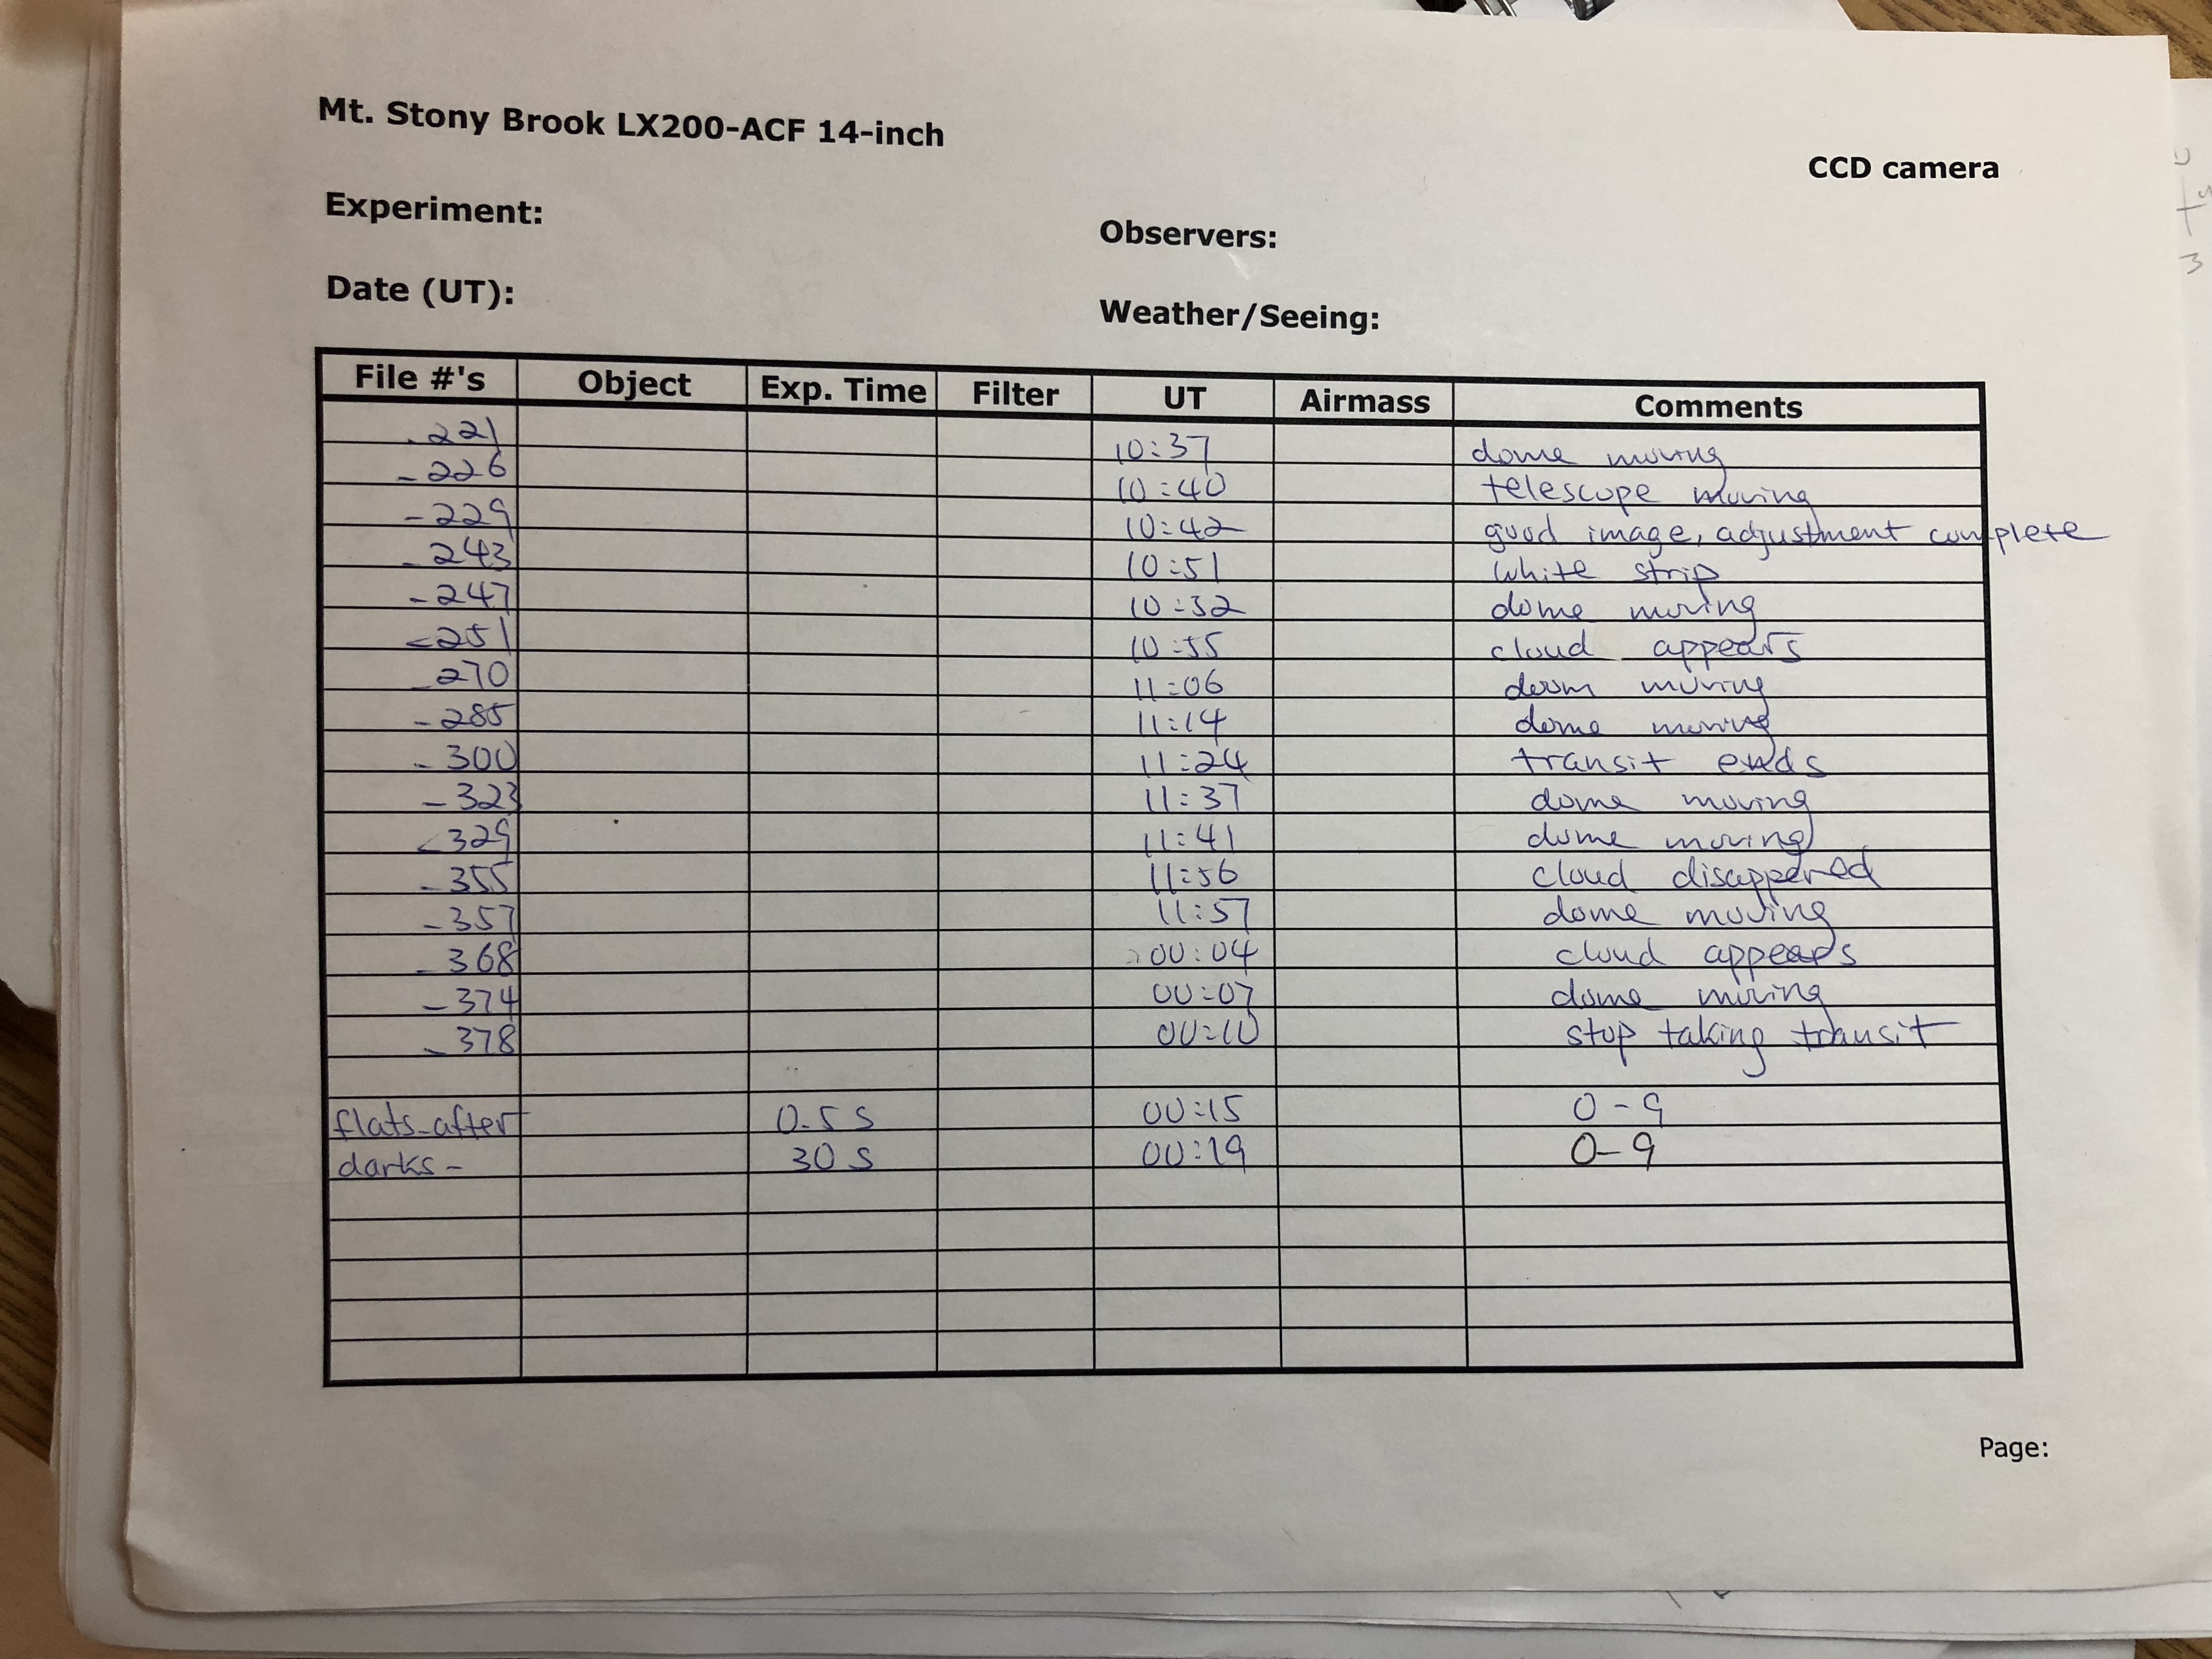 Mt. Stony Brook LX200-ACF 14-inch
CCD camera
Experiment:
Observers:
Date (UT):
Weather/Seeing:
File #'s Object Exp. Time Filter UT Airmass Comments
-221 10:37 dome moving
-226 10:40 telescope moving
-229 10:42 good image, adjustment complete
-243 10:51 white strip
-247 10:52 dome moving
-251 10:55 cloud appears
-270 11:06 doom moving
-285 11:14 dome moving
-300 11:24 transit ends
-323 11:37 dome moving
-329 11:41 dome moving
-355 11:56 cloud disappered
-357 11:57 dome moving
-368 00:04 cloud appears
-374 00:07 dome moving
-378 00:10 stop taking transit
flats-after 0.5 s 00:15 0-9
darks- 30 s 00:19 0-9
Page: